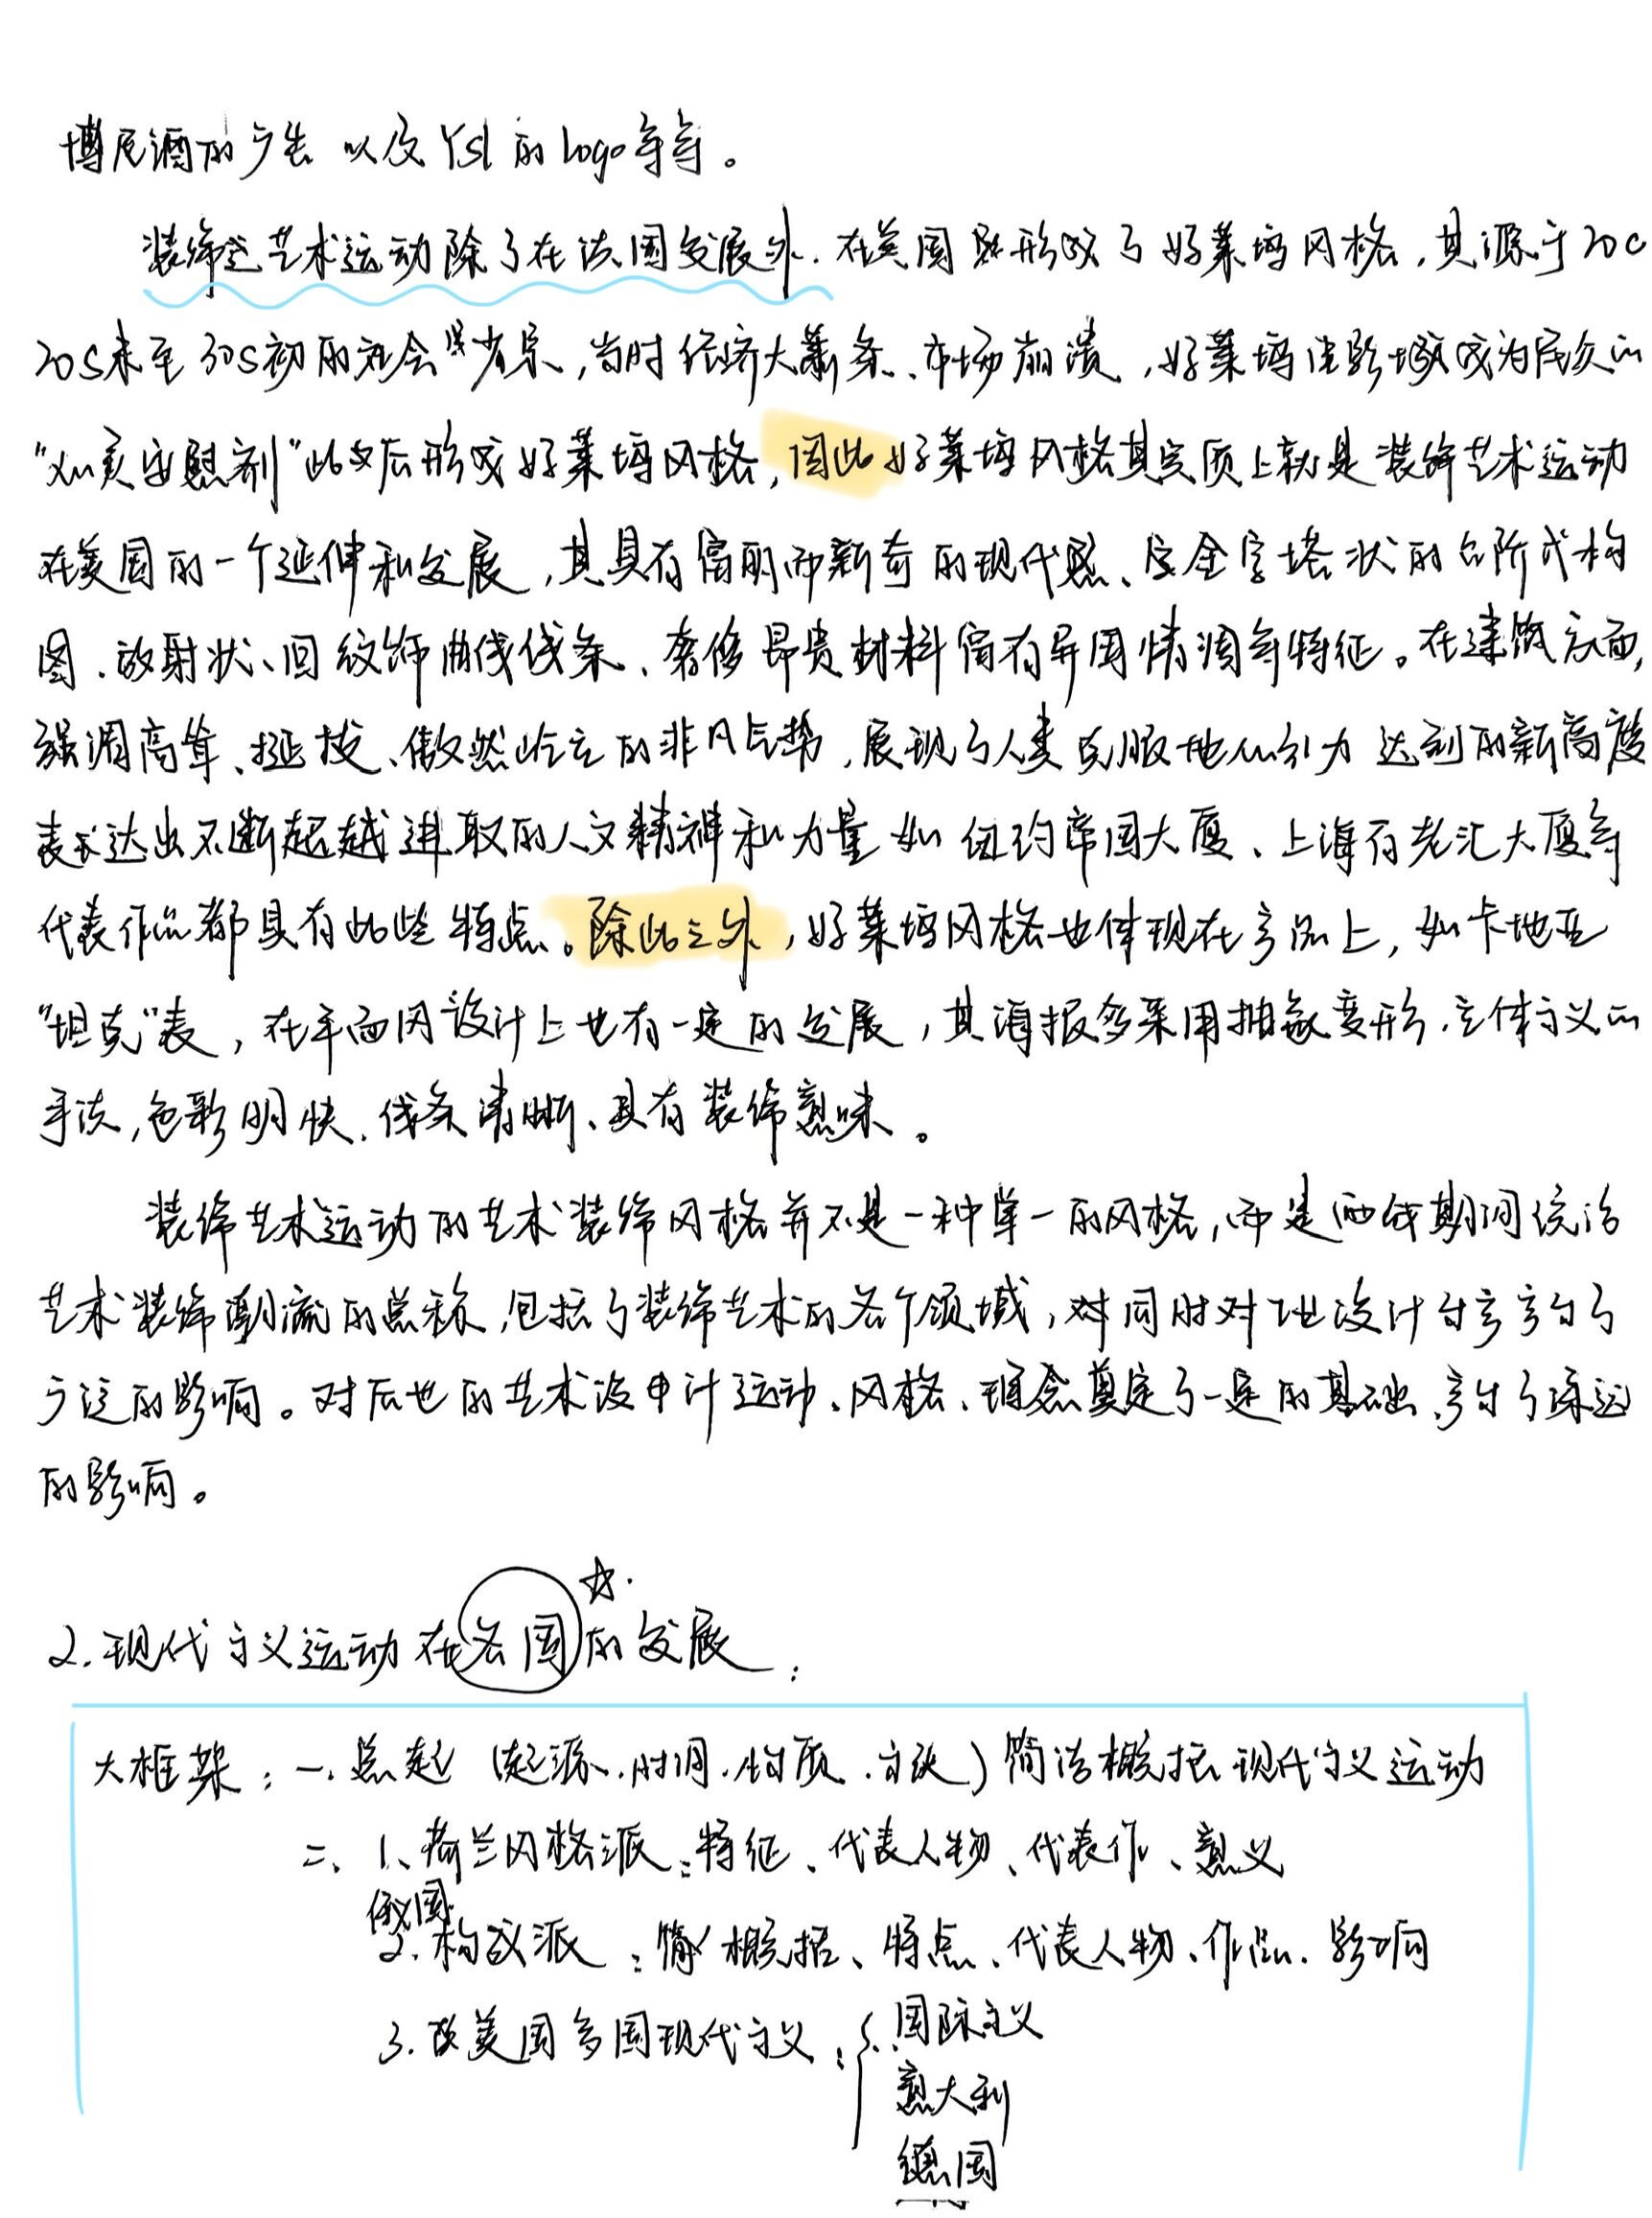 博尼酒的广告 以及YSL的logo等等。
装饰艺术运动除了在法国发展外、在美国既形成了好莱坞风格，其源于20c
20s末至30s初的社会背景，当时经济大萧条、市场崩溃，好莱坞电影城成为民众的
“心灵安慰剂”此文后形成好莱坞风格，因此好莱坞风格其实质上就是装饰艺术运动
在美国的一个延伸和发展，其具有富丽而新奇的现代感、金字塔状的台阶式构
图、放射状、回纹饰曲线线条、奢侈昂贵材料富有异国情调等特征。在建筑方面，
强调高耸、挺拔、傲然屹立的非凡气势，展现了人类克服地心引力 达到的新高度
表达出不断超越进取的人文精神和力量 如 纽约帝国大厦、上海百老汇大厦等
代表作品都具有此些特点。除此之外，好莱坞风格也体现在产品上，如卡地亚
“坦克”表，在平面设计上也有一定的发展，其海报多采用抽象变形、立体主义的
手法，色彩明快、线条清晰、具有装饰意味。
装饰艺术运动的艺术装饰风格并不是一种单一的风格，而是两战期间统治
艺术装饰潮流的总称，包括了装饰艺术的各个领域，对同时对工业设计产生了
广泛的影响。对后世的艺术设计运动、风格、理念奠定了一定的基础、产生了深远
的影响。
2.现代主义运动在各国的发展：
大框架：一、总起（起源、时间、性质、主张）简洁概括现代主义运动
二、1、荷兰风格派：特征、代表人物、代表作、意义
俄国
2.构成派：简概括、特点、代表人物、作品、影响
3.欧美国多国现代主义：国际主义
意大利
德国